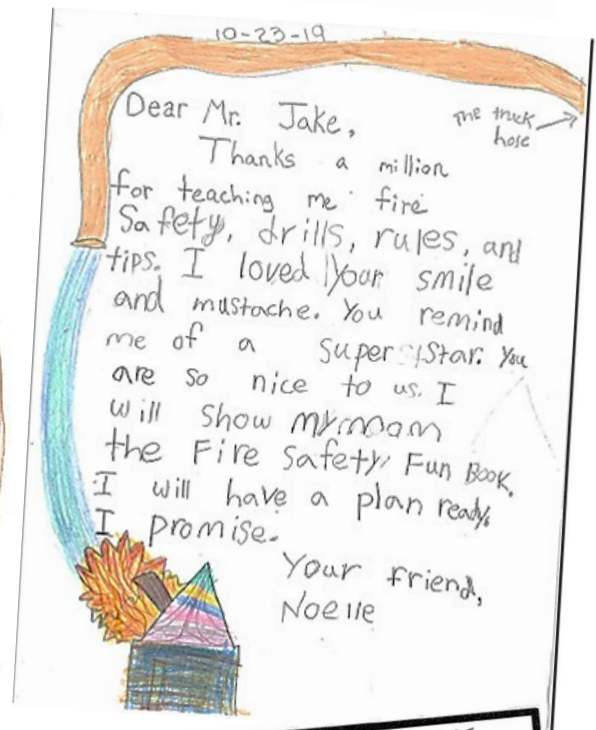 10-23-19
Dear Mr. Jake,
The truck
hose
Thanks a million
for teaching me fire
Safety, drills, rules, and
tips. I loved your smile
and mustache. You remind
me of a super Star. You
are so nice to us. I
will show my mom
the Fire Safety Fun Book.
I will have a plan ready,
I promise.
Your friend,
Noelle